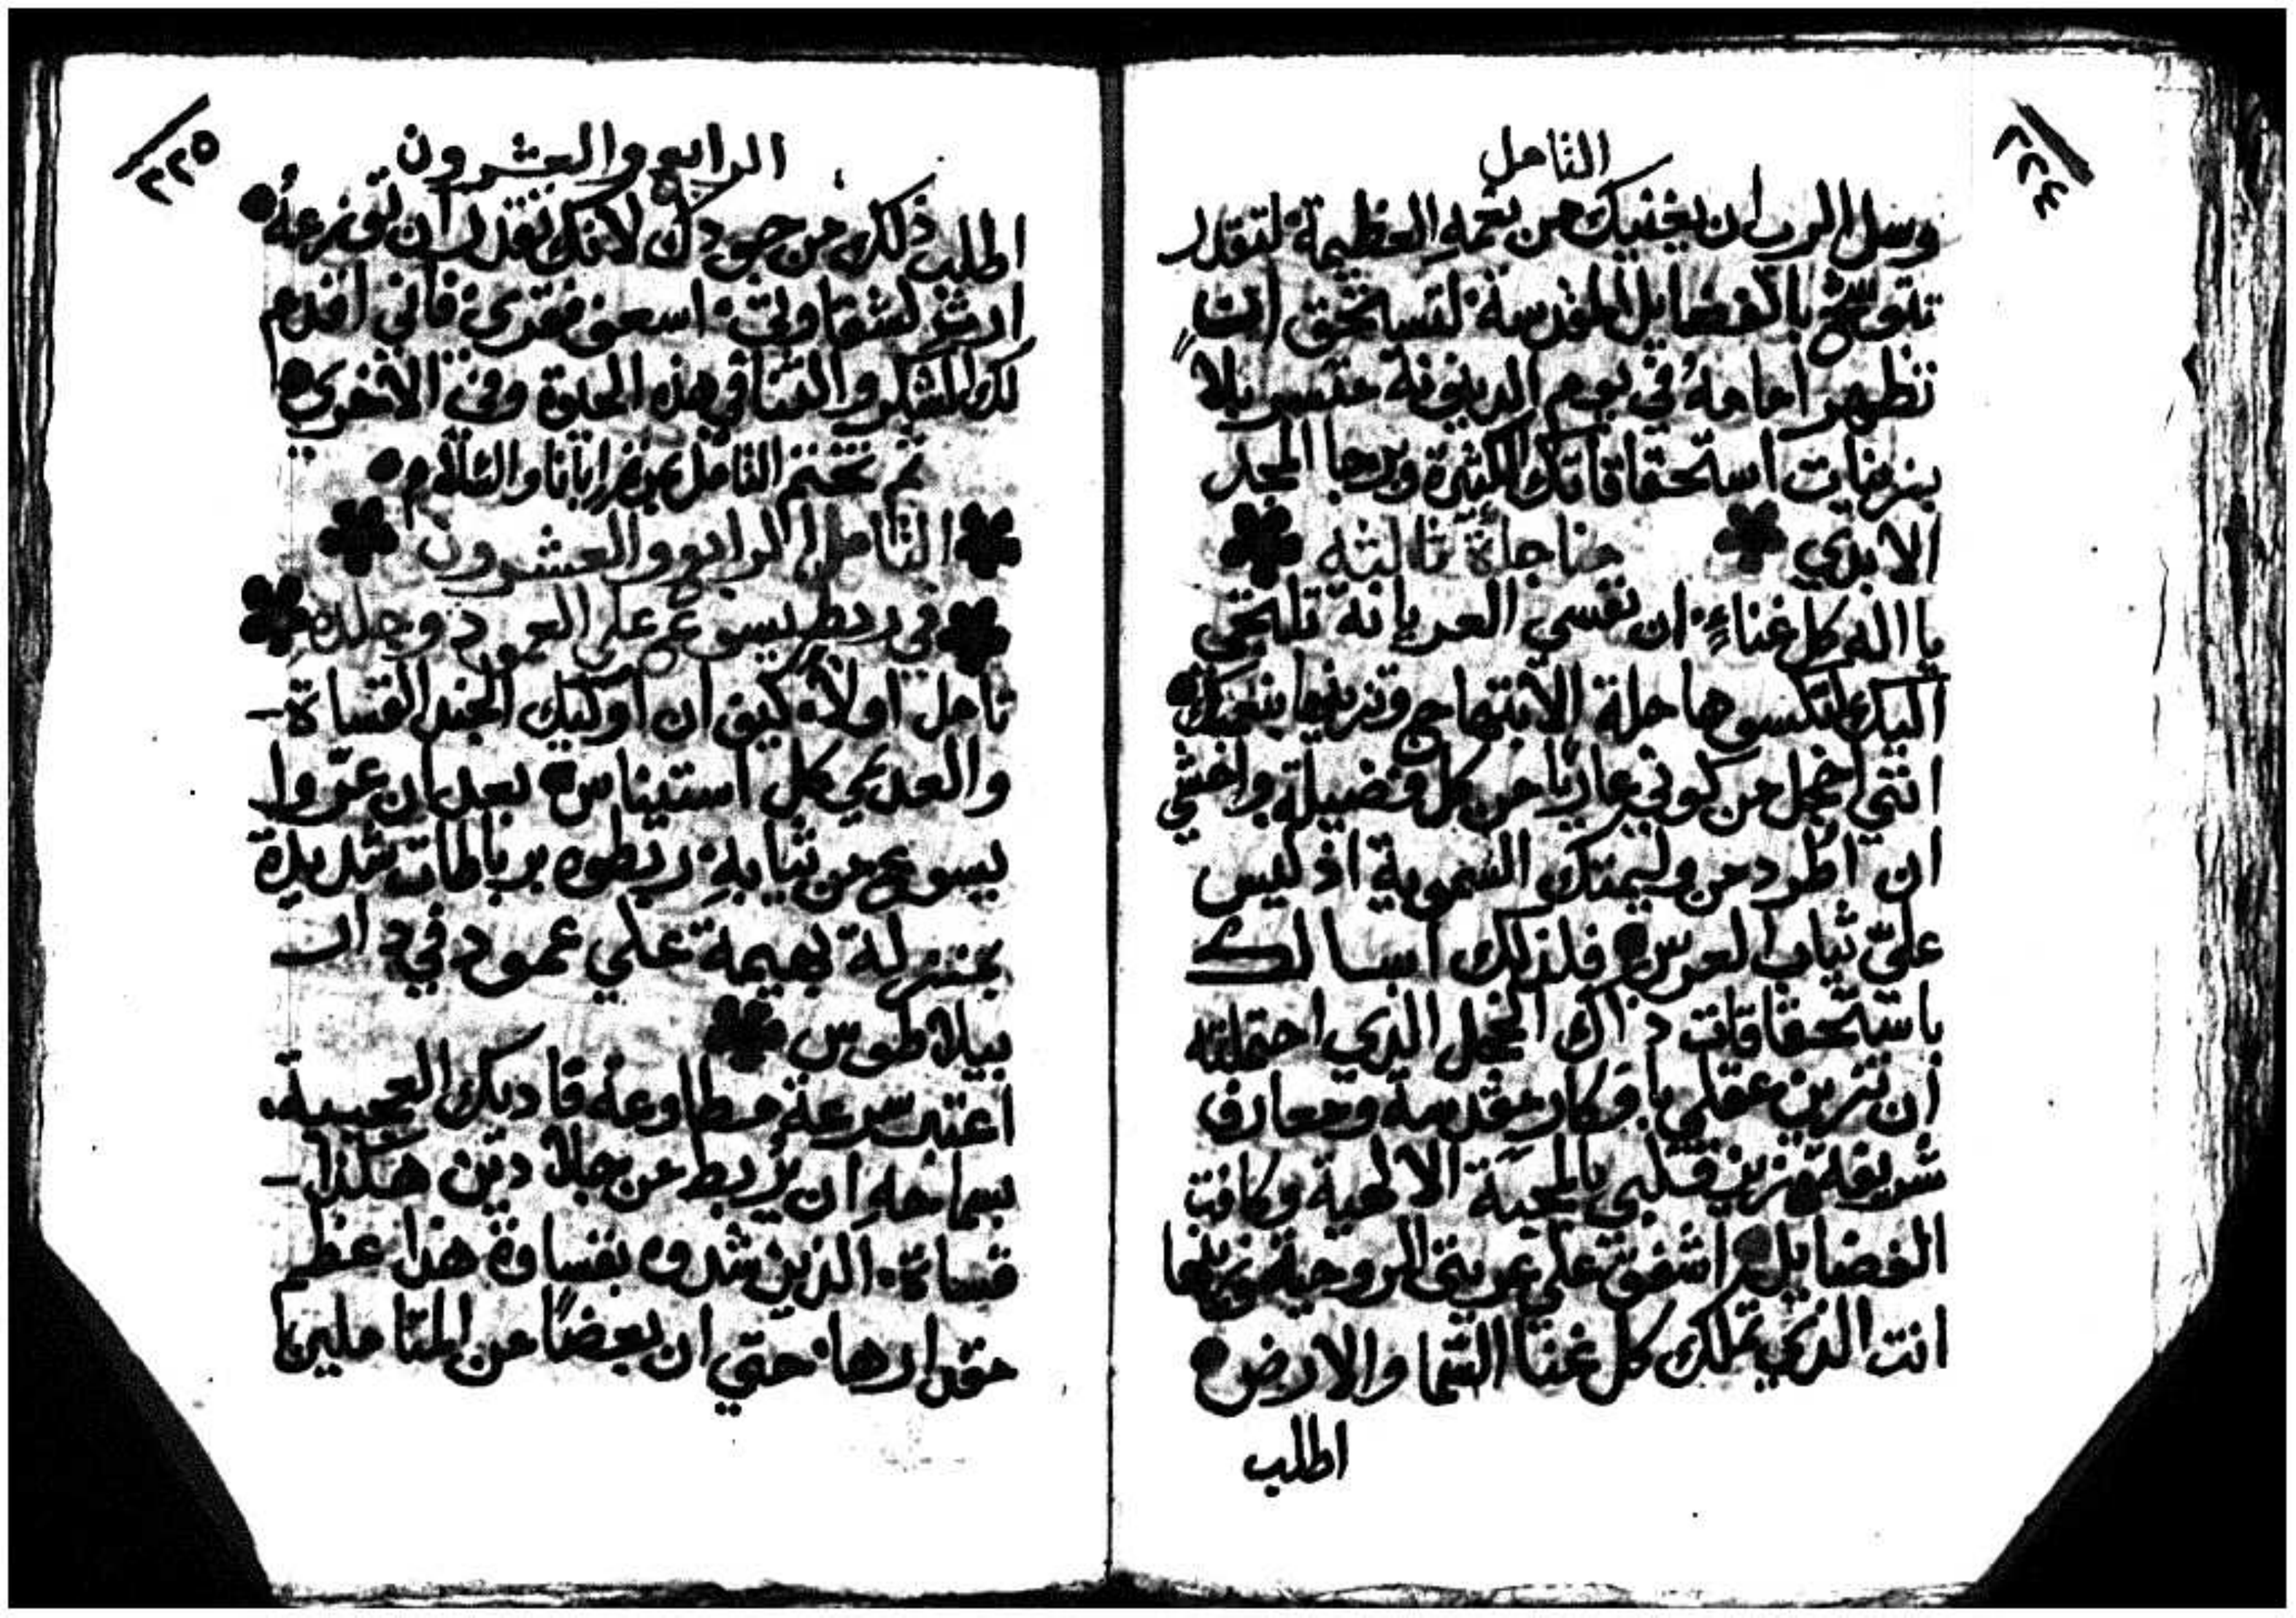 ٢٢٤
التامل
وسل الرب ان يغنيك من نعمهِ العظيمة لتقدر
تتوشح بالفضايل المقدسة لتستحق ان
تظهر امامهُ في يوم الدينونة متسربلا
بزينات استحقاقاتك الكثيرة وبرجا المجد
الابدي مناجاة ثالثه
يا اله كل غناءٍ ان نفسي العريانة تلتجي
اليك لتكسوها حلة الابتهاج وتزينها بنعمتك
انني اخجل من كوني عاريًا من كل فضيلة واخشي
ان اُطرد من وليمتك السموية اذ ليس
عليّ ثياب العرس فلذلك اسالك
باستحقاقات ذاك الخجل الذي احتملته
ان تزين عقلي بافكار مقدسة ومعارف
شريفة وتزين قلبي بالمحبة الالهية وكافت
الفضايل اشفق علي عريتي الروحية وزينها
انت الذي تملك كل غنا السما والارض
اطلب
٢٢٥
الرابع والعشرون
اطلب ذلك من جودك لانك تقدر ان توزعهُ
ارث لشقاوتي اسعف فقري فاني اقدم
لك الشكر والثنا في هذه الحيوة وفي الاخري
ثم تختم التامل بمرة ابانا والسلام
التامل الرابع والعشرون
في ربط يسوع علي العمود وجلده
تامل اولاً كيف ان اوليك الجند القساة
والعديمي كل استيناس بعد ان عرّوا
يسوع من ثيابهِ ربطوه برباطات شديدة
بمنزلة بهيمة علي عمود في دار
بيلاطوس
اعتبر سرعة مطاوعة فاديك العجيبة
بسماحهِ ان يُربط من جلادين هكذا
قساة الذين شدوه بقساوة هذا عظم
مقدارها حتي ان بعضًا من المتاملين